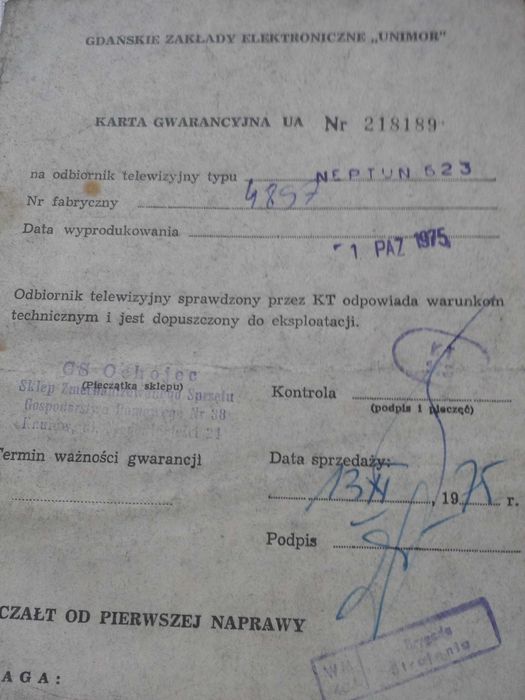 GDAŃSKIE ZAKŁADY ELEKTRONICZNE „UNIMOR"
KARTA GWARANCYJNA UA Nr 218189
na odbiornik telewizyjny typu NEPTUN 623
Nr fabryczny 4897
Data wyprodukowania -1 PAZ 1975
Odbiornik telewizyjny sprawdzony przez KT odpowiada warunkom
technicznym i jest dopuszczony do eksploatacji.
GS Ochojec
(Pieczątka sklepu)
Sklep Zmechanizowanego Sprzętu
Gospodarstwa Domowego Nr 38
Kontrola
(podpis i pieczęć)
Termin ważności gwarancji
Data sprzedaży:
13 XI, 1975 r.
Podpis
CZAŁT OD PIERWSZEJ NAPRAWY
AGA:
Brygada
Strojenia